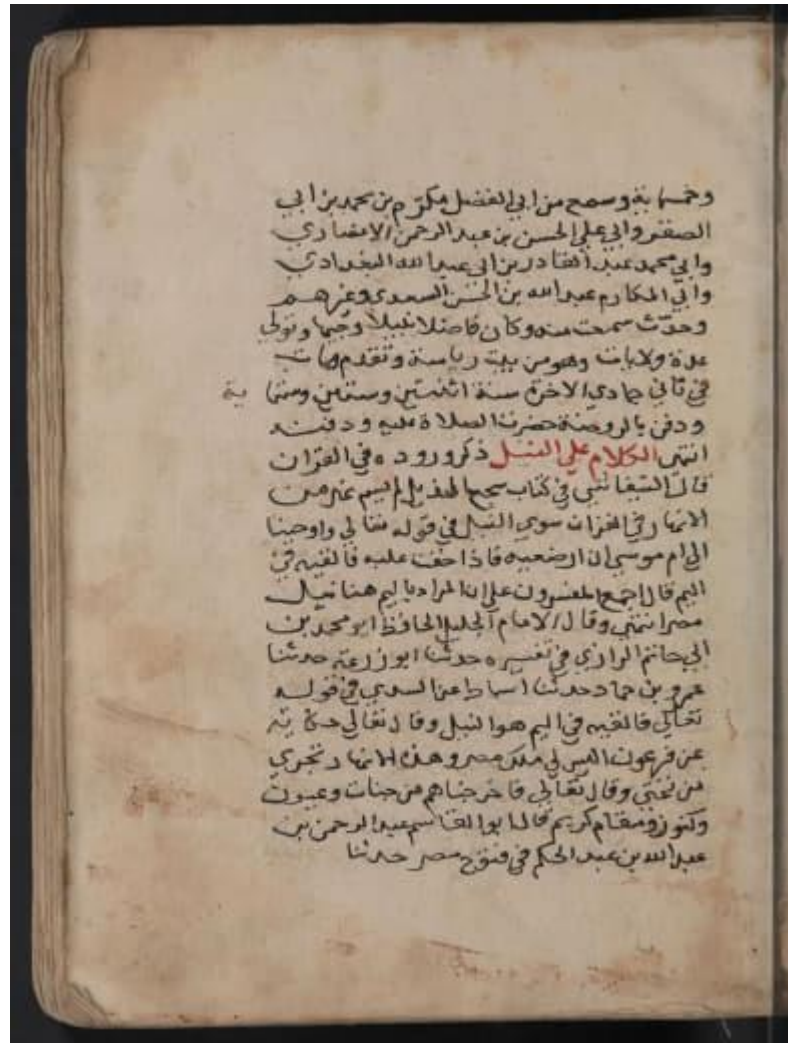 وخمسماية وسمع من ابي الفضل مكرم بن محمد بن ابي
الصقر وابي علي الحسن بن عبد الرحمن الانصاري
وابي محمد عبد القادر بن ابي عبد الله البغدادي
وابي المكارم عبد الله بن الحسن السعدي وغيرهم
وحدث سمعت منه وكان فاضلا نبيلا وجيها وتولي
عدة ولايات وهو من بيت رياسة وتقدم مات
في ثاني جمادي الاخرة سنة اثنتين وستين وستماية
ودفن بالروضة حضرت الصلاة عليه ودفنه
انتهي الكلام علي النيل ذكر وروده في القران
قال التيفاشي في كتاب سجع الهديل لم يسم نهر من
الانهار في القران سوي النيل في قوله تعالي واوحينا
الي ام موسي ان ارضعيه فاذا خفت عليه فالقيه في
اليم قال اجمع المفسرون علي ان المراد باليم هنا نيل
مصر انتهي وقال الامام الجليل الحافظ ابو محمد بن
ابي حاتم الرازي في تفسيره حدثنا ابو زرعة حدثنا
عمرو بن حماد حدثنا اسباط عن السدي في قوله
تعالي فالقيه في اليم هو النيل وقال تعالي حكاية
عن فرعون اليس لي ملك مصر وهذه الانهار تجري
من تحتي وقال تعالي فاخرجناهم من جنات وعيون
وكنوز ومقام كريم قال ابو القاسم عبد الرحمن بن
عبد الله بن عبد الحكم في فتوح مصر حدثنا